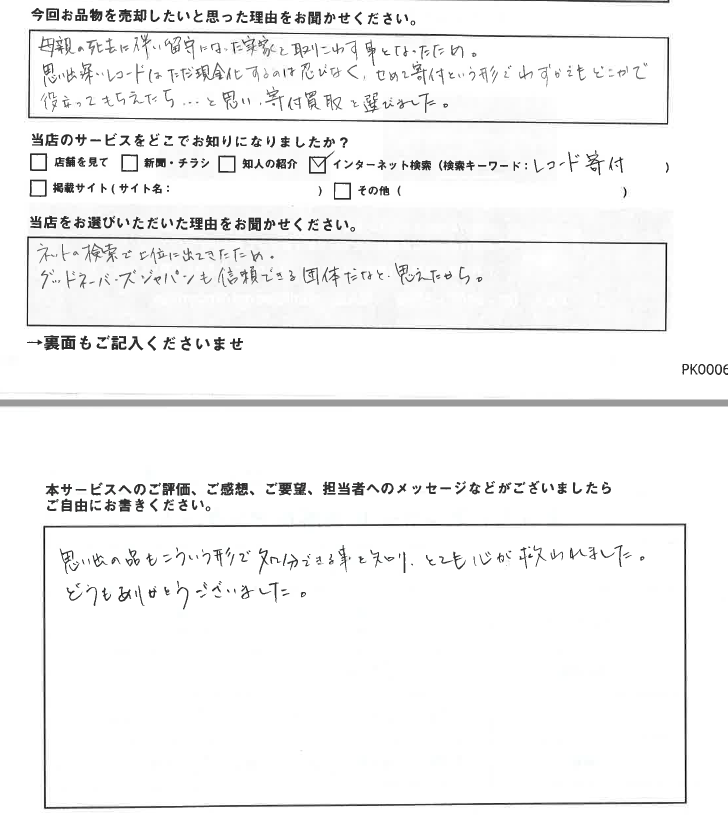 今回お品物を売却したいと思った理由をお聞かせください。
母親の死去に伴い留守になった実家を取りこわす事となったため。
思い出深いレコードはただ現金化するのは忍びなく、せめて寄付という形でわずかでもどこかで
役立ってもらえたら…と思い、寄付買取を選びました。
当店のサービスをどこでお知りになりましたか？
店舗を見て 新聞・チラシ 知人の紹介 インターネット検索（検索キーワード：レコード寄付 ）
掲載サイト（サイト名： ） その他（ ）
当店をお選びいただいた理由をお聞かせください。
ネットの検索で上位に出てきたため。
グッドネーバーズジャパンも信頼できる団体だなと思えたから。
→裏面もご記入くださいませ
PK0006
本サービスへのご評価、ご感想、ご要望、担当者へのメッセージなどがございましたら
ご自由にお書きください。
思い出の品もこういう形で処分できる事を知り、とても心が救われました。
どうもありがとうございました。